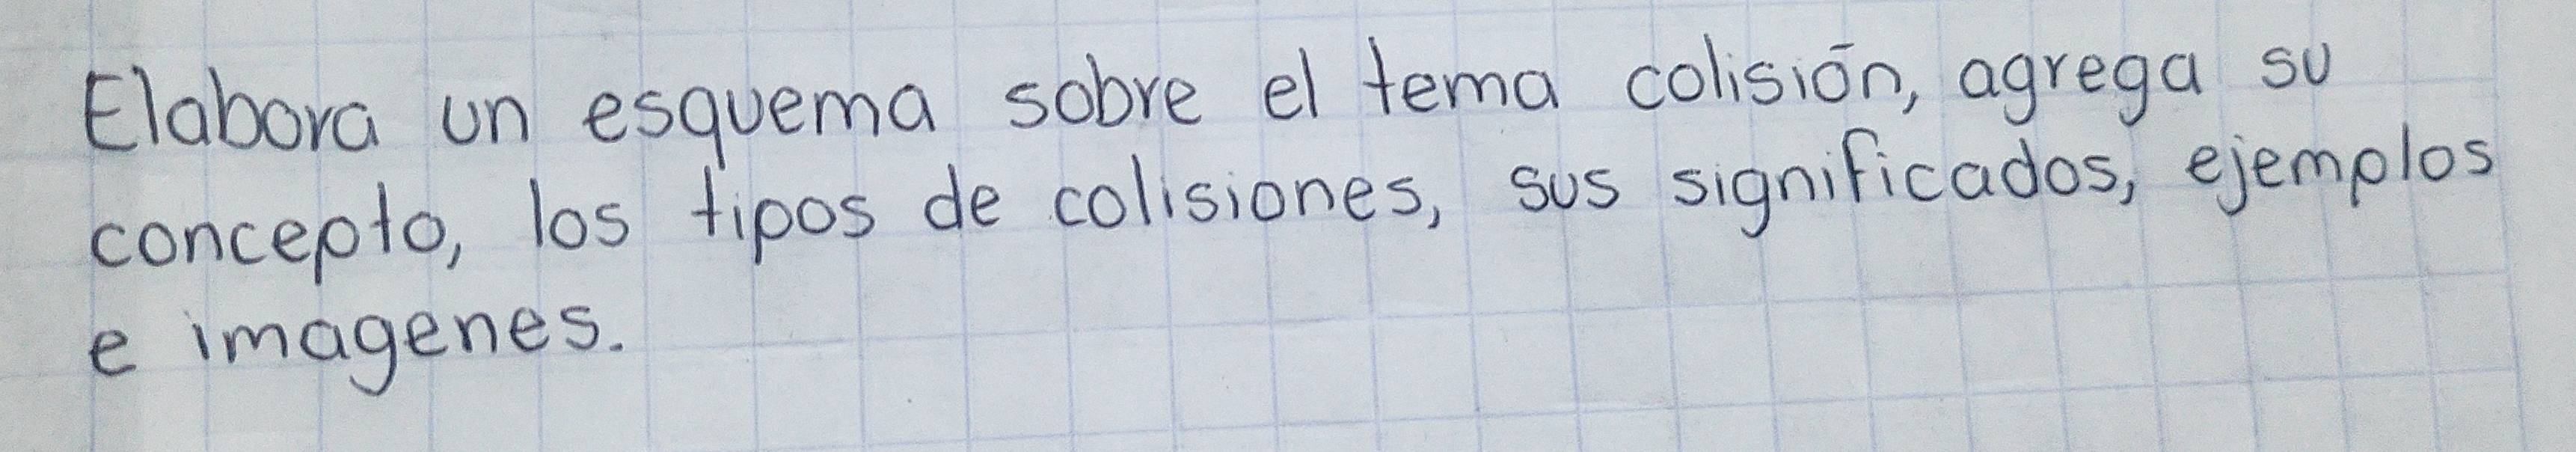 Elabora un esquema sobre el tema colisión, agrega su
concepto, los tipos de colisiones, sus significados, ejemplos
e imagenes.